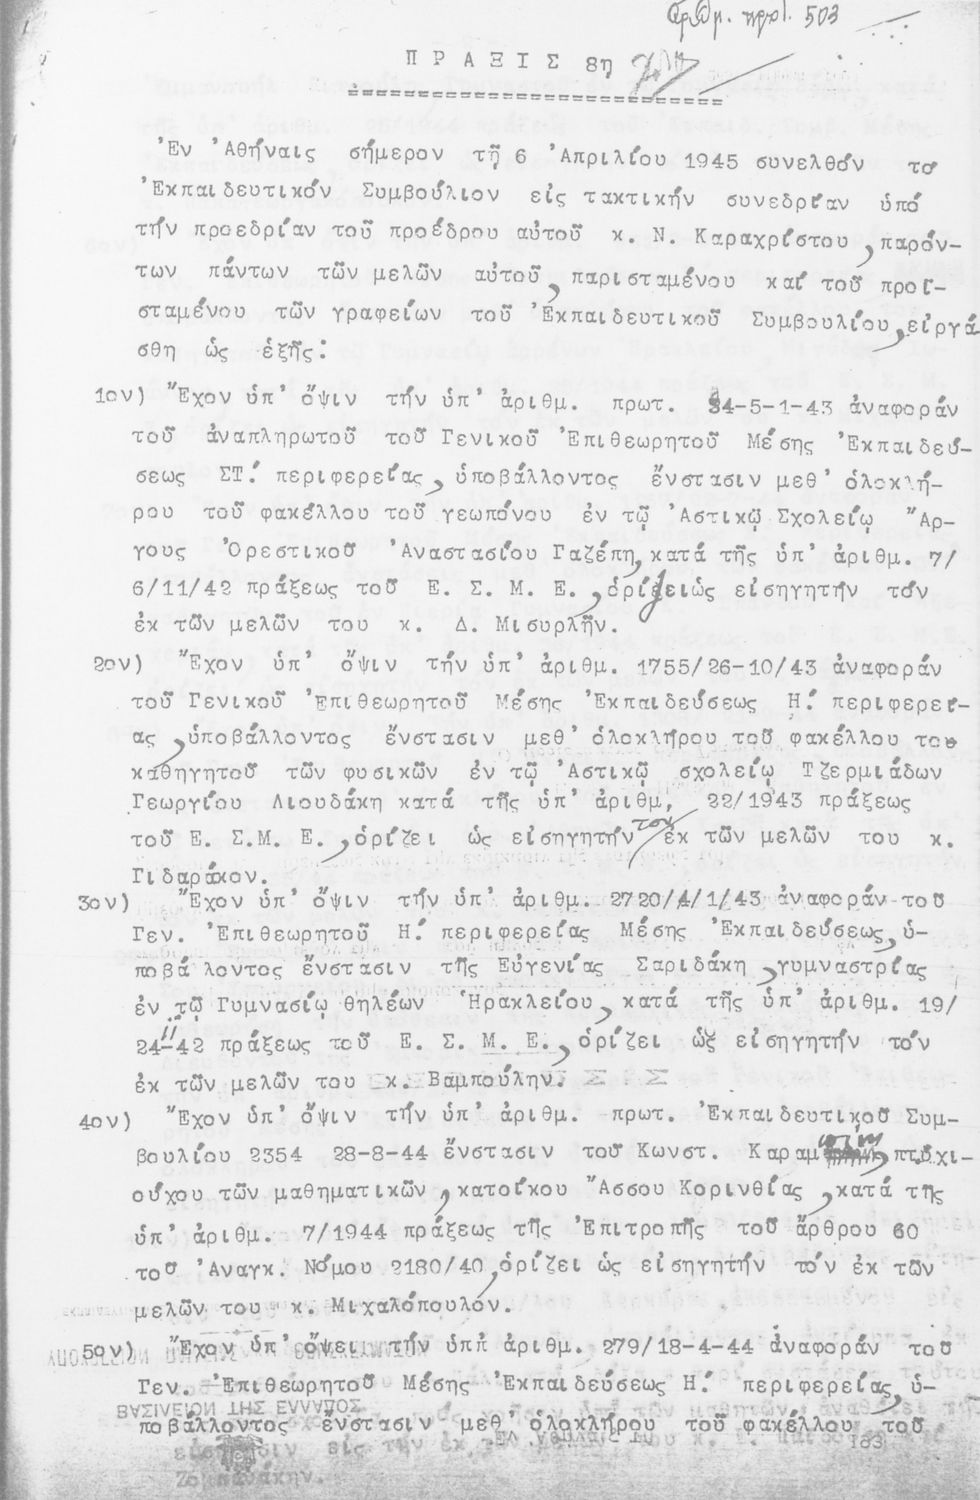 Ἀριθμ. πρωτ. 503
ΠΡΑΞΙΣ 8η
Ἐν Ἀθήναις σήμερον τῇ 6 Ἀπριλίου 1945 συνελθόν το
Ἐκπαιδευτικόν Συμβούλιον εἰς τακτικήν συνεδρίαν ὑπό
τήν προεδρίαν τοῦ προέδρου αὐτοῦ κ. Ν. Καραχρίστου, παρόν-
των πάντων τῶν μελῶν αὐτοῦ, παρισταμένου καί τοῦ προϊ-
σταμένου τῶν γραφείων τοῦ Ἐκπαιδευτικοῦ Συμβουλίου, εἰργά
σθη ὡς ἑξῆς:
1ον) Ἔχον ὑπ' ὄψιν τήν ὑπ' ἀριθμ. πρωτ. 84-5-1-43 ἀναφοράν
τοῦ ἀναπληρωτοῦ τοῦ Γενικοῦ Ἐπιθεωρητοῦ Μέσης Ἐκπαιδεύ-
σεως ΣΤ! περιφερείας, ὑποβάλλοντος ἔνστασιν μεθ' ὁλοκλή-
ρου τοῦ φακέλλου τοῦ γεωπόνου ἐν τῷ Ἀστικῷ Σχολείῳ Ἄρ-
γους Ὀρεστικοῦ Ἀναστασίου Γαζέπη, κατά τῆς ὑπ' ἀριθμ. 7/
6/11/42 πράξεως τοῦ Ε. Σ. Μ. Ε., ὁρίζει ὡς εἰσηγητήν τόν
ἐκ τῶν μελῶν του κ. Δ. Μισυρλῆν.
2ον) Ἔχον ὑπ' ὄψιν τήν ὑπ' ἀριθμ. 1755/26-10/43 ἀναφοράν
τοῦ Γενικοῦ Ἐπιθεωρητοῦ Μέσης Ἐκπαιδεύσεως Η! περιφερεί-
ας, ὑποβάλλοντος ἔνστασιν μεθ' ὁλοκλήρου τοῦ φακέλλου του
καθηγητοῦ τῶν φυσικῶν ἐν τῷ Ἀστικῷ σχολείῳ Τζερμιάδων
Γεωργίου Λιουδάκη κατά τῆς ὑπ' ἀριθμ, 22/1943 πράξεως
τοῦ Ε. Σ.Μ. Ε., ὁρίζει ὡς εἰσηγητήν τον ἐκ τῶν μελῶν του κ.
Γιδαράκον.
3ον) Ἔχον ὑπ' ὄψιν τήν ὑπ' ἀριθμ. 2720/4/1/43 ἀναφοράν τοῦ
Γεν. Ἐπιθεωρητοῦ Η! περιφερείας Μέσης Ἐκπαιδεύσεως, ὑ-
ποβά λοντος ἔνστασιν τῆς Εὐγενίας Σαριδάκη, γυμναστρίας
ἐν τῷ Γυμνασίῳ θηλέων Ἡρακλείου, κατά τῆς ὑπ' ἀριθμ. 19/
24-11-42 πράξεως τοῦ Ε. Σ. Μ. Ε., ὁρίζει ὡς εἰσηγητήν τόν
ἐκ τῶν μελῶν του κ. Βαμπούλην.
4ον) Ἔχον ὑπ' ὄψιν τήν ὑπ' ἀριθμ. πρωτ. Ἐκπαιδευτικοῦ Συμ-
βουλίου 2354 28-8-44 ἔνστασιν τοῦ Κωνστ. Καραμ, πτυχι-
ούχου τῶν μαθηματικῶν, κατοίκου Ἄσσου Κορινθίας, κατά τῆς
ὑπ' ἀριθμ. 7/1944 πράξεως τῆς Ἐπιτροπῆς τοῦ ἄρθρου 60
τοῦ Ἀναγκ. Νόμου 2180/40, ὁρίζει ὡς εἰσηγητήν τόν ἐκ τῶν
μελῶν του κ. Μιχαλόπουλον.
5ον) Ἔχον ὑπ' ὄψει τήν ὑππ ἀριθμ. 279/18-4-44 ἀναφοράν τοῦ
Γεν. Ἐπιθεωρητοῦ Μέσης Ἐκπαιδεύσεως Η! περιφερείας, ὑ-
ποβάλλοντος ἔνστασιν μεθ' ὁλοκλήρου τοῦ φακέλλου τοῦ